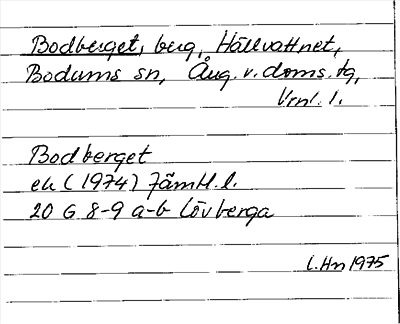 Bodberget, berg, Hällvattnet,
Bodums sn, Ång. v. doms. tg,
Vrnl. l.
Bodberget
ek (1974) Jämtl. l.
20 G 8-9 a-b Lövberga
L.Hn 1975